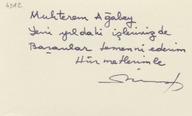 Muhterem Ağabey
Yeni yıldaki işlerinizde
Başarılar temenni ederim
Hürmetlerimle